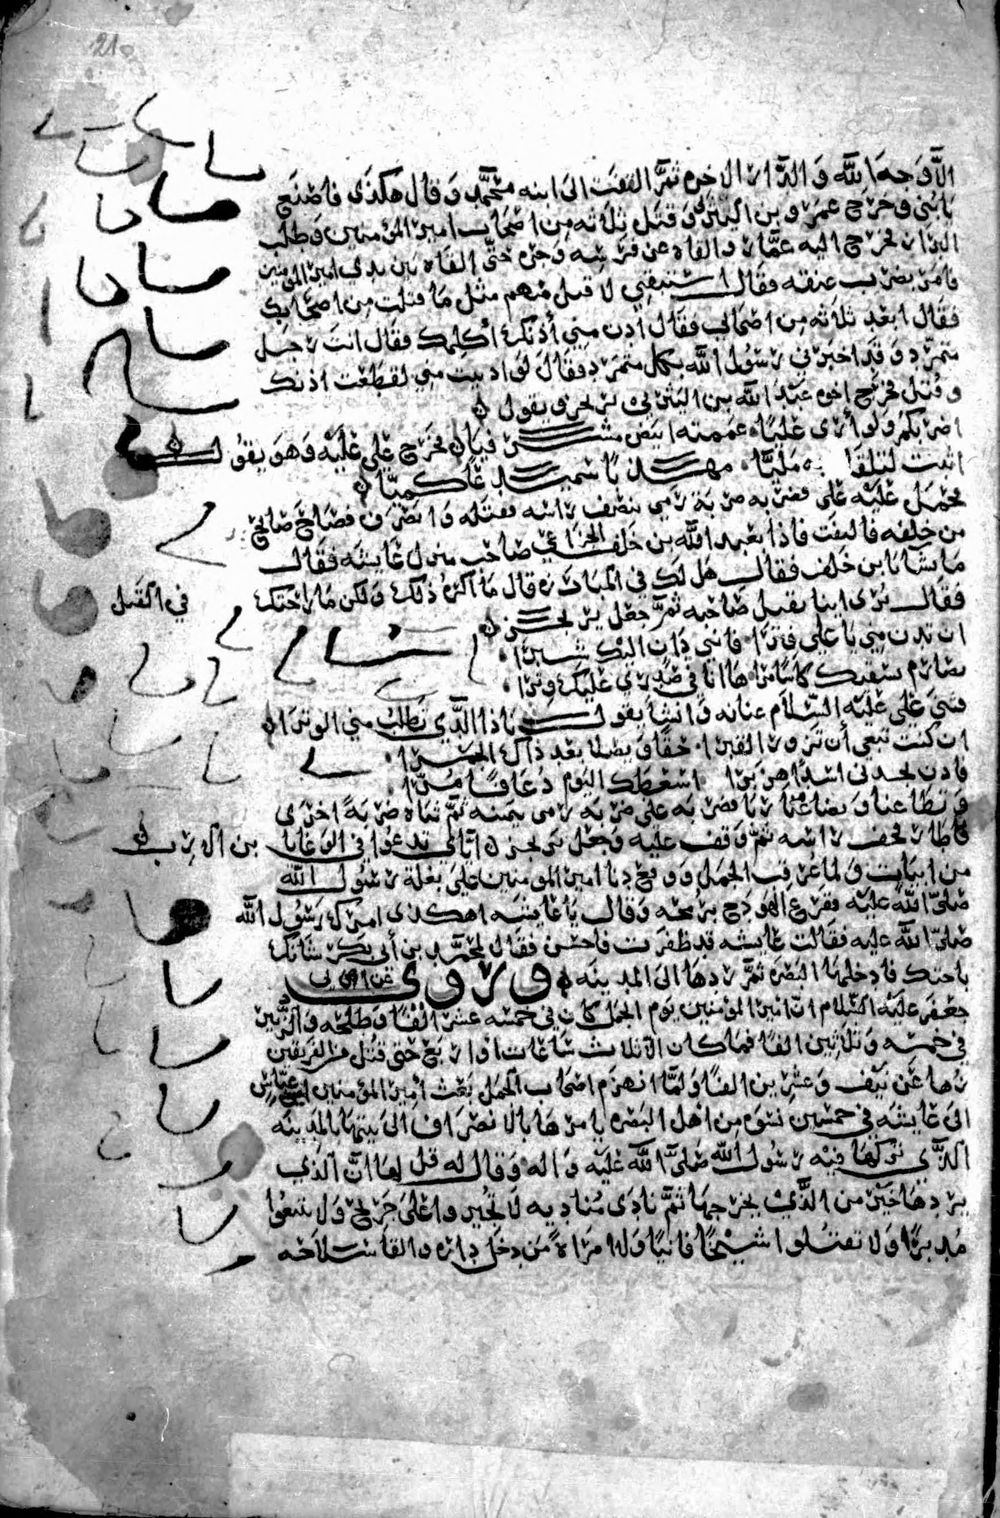 21
الا وجه الله والدار الاخرة ثم التفت الى ابنه محمد وقال هكذى فاصنع
يابني وخرج عمرو بن اليثربي وقتل ثلاثة من اصحاب امير المؤمنين وطلب
البراز فخرج اليه عمار والقاه عن فرسه وجره حتى القاه بين يدي امير المؤمنين
فامر بضرب عنقه فقال استبقني لا قتل منهم مثل ما قتلت من اصحابك
فقال ابعد ثلاثة من اصحابي فقال ادن مني أذنك اكلمك فقال انت رجل
متمرد وقد اخبرني رسول الله بكل متمرد فقال لو ادنيت مني لقطعت اذنك
وقتل فخرج اخوه عبد الله بن اليثربي يرتجز ويقول
اضربكم ولو أرى عليا عممته ابيض مشرفيا فخرج علي عليه وهو يقول
اثبت لتلقا به مليا مهذبا سميدعا كميا
فحمل عليه علي فضربه ضربة رمى بنصف راسه فقتله وانصرف فصاح صائح
من خلفه فالتفت فاذا بعبد الله بن خلف الخزاعي صاحب منزل عايشه فقال
ما تشا يا بن خلف فقال هل لك في المبارزه قال ما اكره ذلك ولكن ما راحتك
في القتل
فقال ترى اينا يقتل صاحبه ثم جعل يرتجز
ان تدن مني يا علي فترا فانني دان اليك شبرا
بصارم يسقيك كاسا مرا ها انا في صدري عليك وترا
فثنى علي عليه السلام عنانه وانشا يقول ياذا الذي يطلب مني الوترا
ان كنت تبغي أن تزور القبرا حقا ويصلا بعد ذاك الجمرا
فادن تجدني اسدا هزبرا اسعطك اليوم ذعافا مرا
وتطاعنا وتضاربا فضربه علي ضربة رمى يمينه ثم ثناه ضربة اخرى
فاطار قحف راسه ثم وقف عليه وجعل يرتجز اياي تدعوا في الوغا يا بن الارب
من ابيات ولما عرقب الجمل ووقع دنا امير المومنين على بغلة رسول الله
صلى الله عليه فقرع الهودج برمحه وقال يا عايشه اهكذى امرك رسول الله
صلى الله عليه فقالت عايشه قد ظفرت فاحسن فقال لمحمد بن أبي بكر شانك
باختك فادخلها البصره ثم ردها الى المدينه وروى عن ابي
جعفر عليه السلام ان امير المؤمنين يوم الجمل كان في خمسه عشر الفا وطلحه والزبير
في خمسه وثلاثين الفا فما كان الا ثلاث ساعات او اربع حتى قتل من الفريقين
زها عن نيف وعشرين الفا ولما انهزم اصحاب الجمل بعث امير المؤمنين ابن عباس
الى عايشه في خمسين نسوه من اهل البصره يامرها بالانصراف الى بيتها بالمدينه
الذي تركها فيه رسول الله صلى الله عليه واله وقال له قل لها ان الذي
يردها خير من الذي يخرجها ثم نادى مناديه لا تجيزوا على جريح ولا تتبعوا
مدبرا ولا تقتلوا شيخا فانيا ولا امراة ومن دخل داره والقا سلاحه